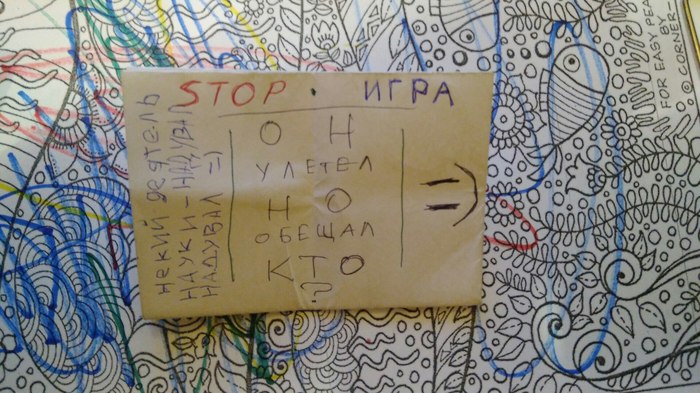 STOP · ИГРА
О Н
УЛЕТЕЛ
Н О
ОБЕЩАЛ
КТО
?
=)
некий деятель
науки - надувал
надувал =)
FOR EASY FEA
BY
© CORNER